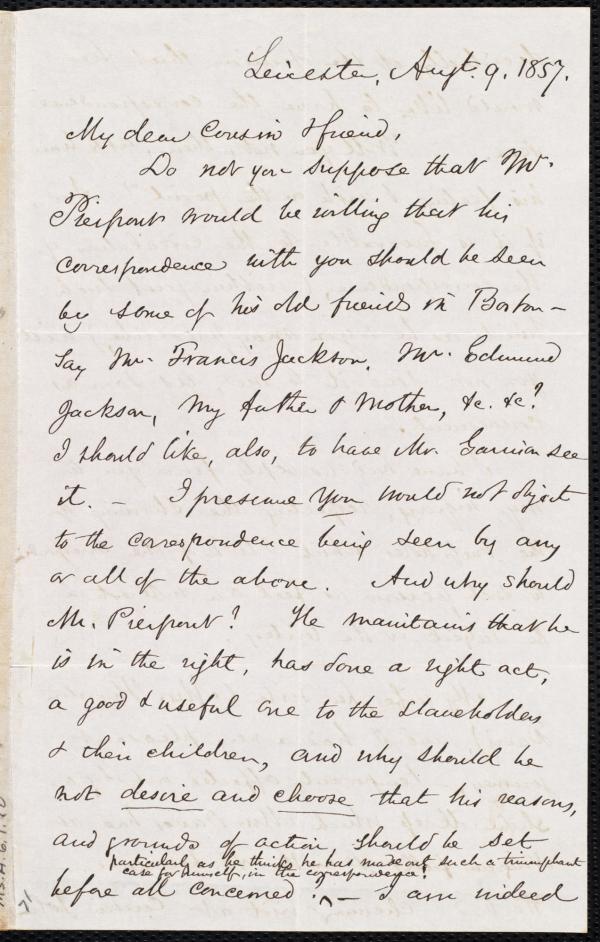 Leicester, Augt. 9. 1857.
My dear Cousin & friend,
Do not you suppose that Mr.
Pierpont would be willing that his
correspondence with you should be seen
by some of his old friends in Boston –
say Mr. Francis Jackson, Mr. Edmund
Jackson, my father & mother, &c. &c?
I should like, also, to have Mr. Garrison see
it. – I presume you would not object
to the correspondence being seen by any
or all of the above. And why should
Mr. Pierpont? He maintains that he
is in the right, has done a right act,
a good & useful one to the slaveholders
& their children, and why should he
not desire and choose that his reasons,
and grounds of action, should be set
particularly as he thinks he has made out such a triumphant
case for himself, in the correspondence!
before all concerned? ^ – I am indeed
71